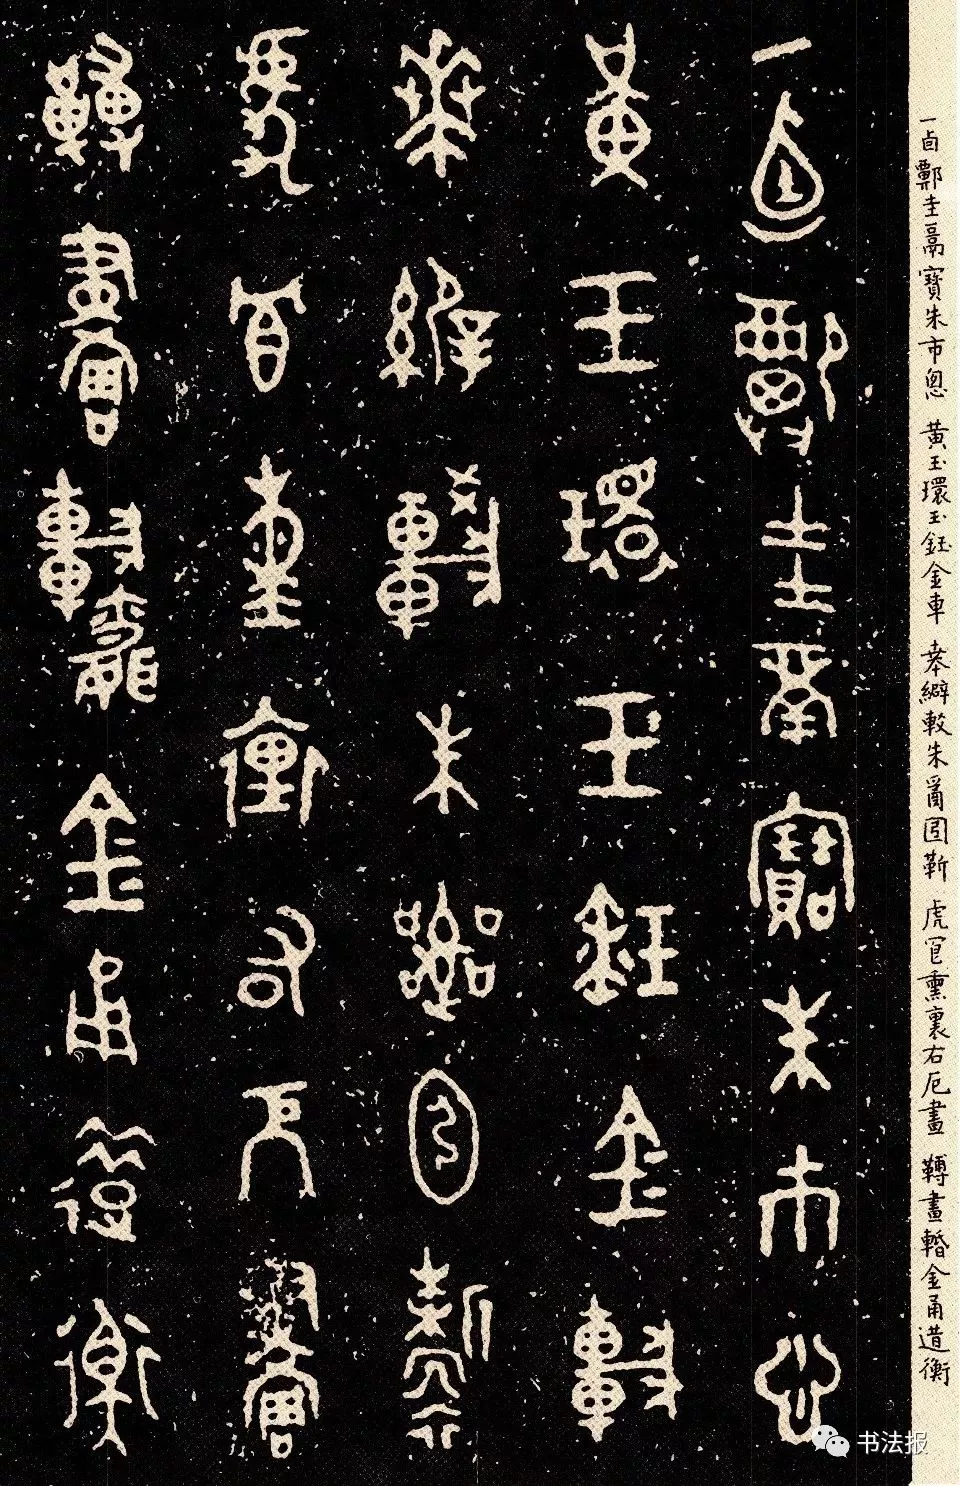 一卣鄭圭鬲寶朱市悤
黃玉環玉鈺金車
𠦪緐較朱䚂𩊠靳
虎冟熏裏右厄畫
轉畫轀金甬道衡
一卣鄭圭鬲寶朱市悤 黃玉環玉鈺金車 𠦪緐較朱䚂𩊠靳 虎冟熏裏右厄畫 轉畫轀金甬道衡
书法报